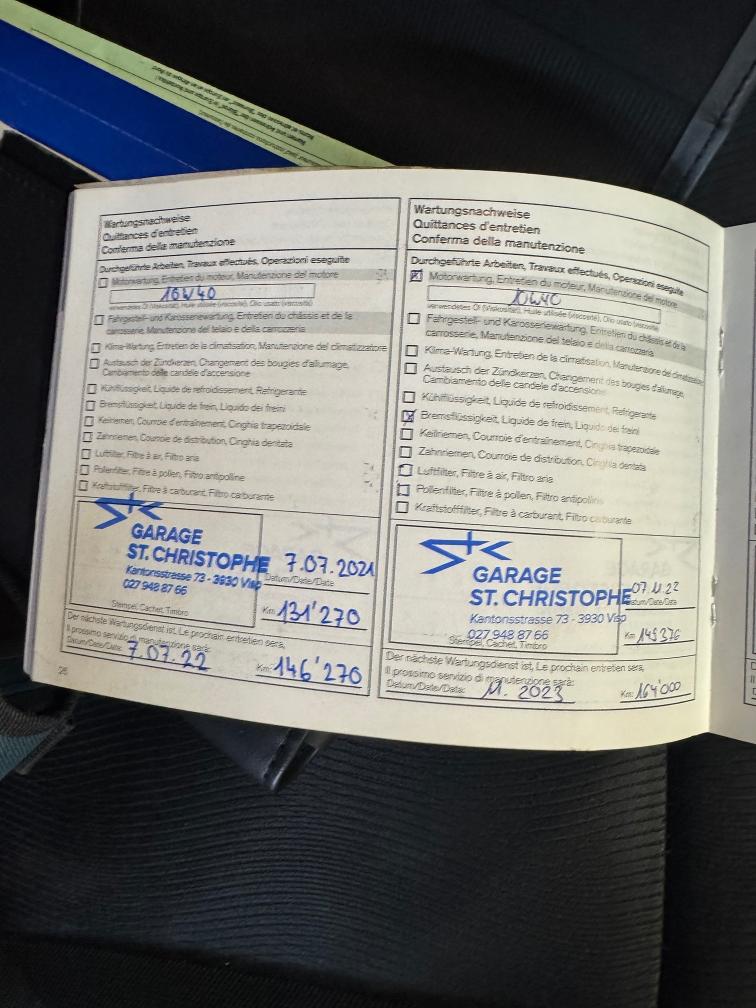 Wartungsnachweise
Quittances d'entretien
Conferma della manutenzione
Durchgeführte Arbeiten, Travaux effectués, Operazioni eseguite
Motorwartung, Entretien du moteur, Manutenzione del motore
10W40
verwendetes Öl (Viskosität), Huile utilisée (viscosité), Olio usato (viscosità)
Fahrgestell- und Karosseriewartung, Entretien du châssis et de la
carrosserie, Manutenzione del telaio e della carrozzeria
Klima-Wartung, Entretien de la climatisation, Manutenzione del climatizzatore
Austausch der Zündkerzen, Changement des bougies d'allumage,
Cambiamento delle candele d'accensione
Kühlflüssigkeit, Liquide de refroidissement, Refrigerante
Bremsflüssigkeit, Liquide de frein, Liquido dei freini
Keilriemen, Courroie d'entraînement, Cinghia trapezoidale
Zahnriemen, Courroie de distribution, Cinghia dentata
Luftfilter, Filtre à air, Filtro aria
Pollenfilter, Filtre à pollen, Filtro antipolline
Kraftstofffilter, Filtre à carburant, Filtro carburante
GARAGE
ST. CHRISTOPHE
Kantonsstrasse 73 - 3930 Visp
027 948 87 66
Stempel, Cachet, Timbro
7.07.2021
Datum/Date/Date
Km: 131'270
Der nächste Wartungsdienst ist, Le prochain entretien sera,
Il prossimo servizio di manutenzione sarà:
Datum/Date/Data: 7.07.22 Km: 146'270
26
Wartungsnachweise
Quittances d'entretien
Conferma della manutenzione
Durchgeführte Arbeiten, Travaux effectués, Operazioni eseguite
Motorwartung, Entretien du moteur, Manutenzione del motore
10W40
verwendetes Öl (Viskosität), Huile utilisée (viscosité), Olio usato (viscosità)
Fahrgestell- und Karosseriewartung, Entretien du châssis et de la
carrosserie, Manutenzione del telaio e della carrozzeria
Klima-Wartung, Entretien de la climatisation, Manutenzione del climatizzatore
Austausch der Zündkerzen, Changement des bougies d'allumage,
Cambiamento delle candele d'accensione
Kühlflüssigkeit, Liquide de refroidissement, Refrigerante
Bremsflüssigkeit, Liquide de frein, Liquido dei freini
Keilriemen, Courroie d'entraînement, Cinghia trapezoidale
Zahnriemen, Courroie de distribution, Cinghia dentata
Luftfilter, Filtre à air, Filtro aria
Pollenfilter, Filtre à pollen, Filtro antipolline
Kraftstofffilter, Filtre à carburant, Filtro carburante
GARAGE
ST. CHRISTOPHE
Kantonsstrasse 73 - 3930 Visp
027 948 87 66
Stempel, Cachet, Timbro
07.11.22
Datum/Date/Data
Km: 145376
Der nächste Wartungsdienst ist, Le prochain entretien sera,
Il prossimo servizio di manutenzione sarà:
Datum/Date/Data: 11. 2023 Km: 164'000